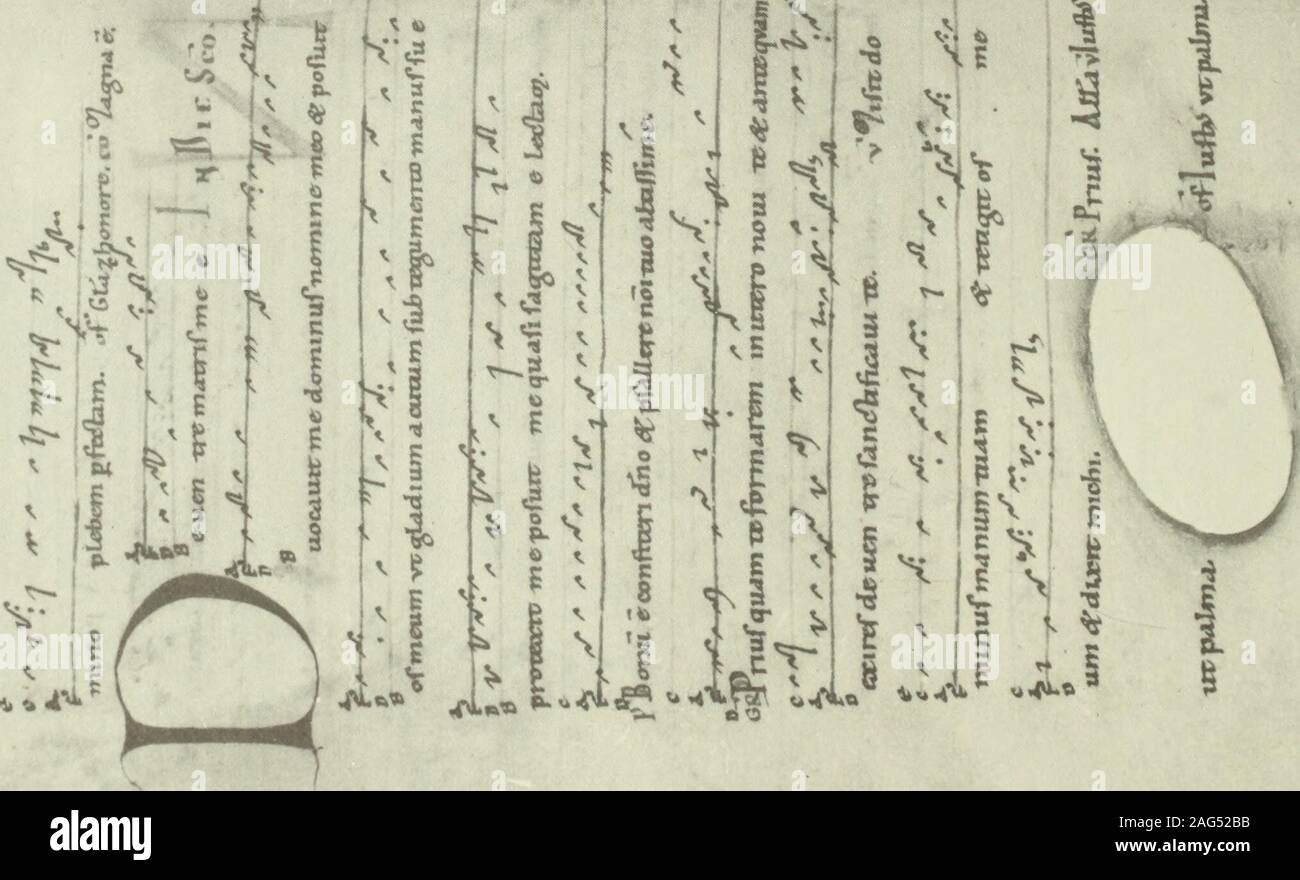 plebem pfectam. of Gla & honore. co Magna ē.
e uen tre matris me e IN DIE SCO.
uocauit me dominus nomine meo & posuit
os meum vt gladium acutum sub tegumento manus su e
protexit me posuit me quasi sagittam e lectam.
Ps Bonū ē confiteri dño & psallere nōi tuo altissime.
GR Priusquam te formarem in utero noui te & antequam
exires de uen tre sanctificaui te. V Misit do
minus manum suam & tetigit os me
um & dixit michi. GR Prius. ALLA V Iustus
ut palma of Iustus vt palma.
alamy
Image ID: 2AG52BB
www.alamy.com